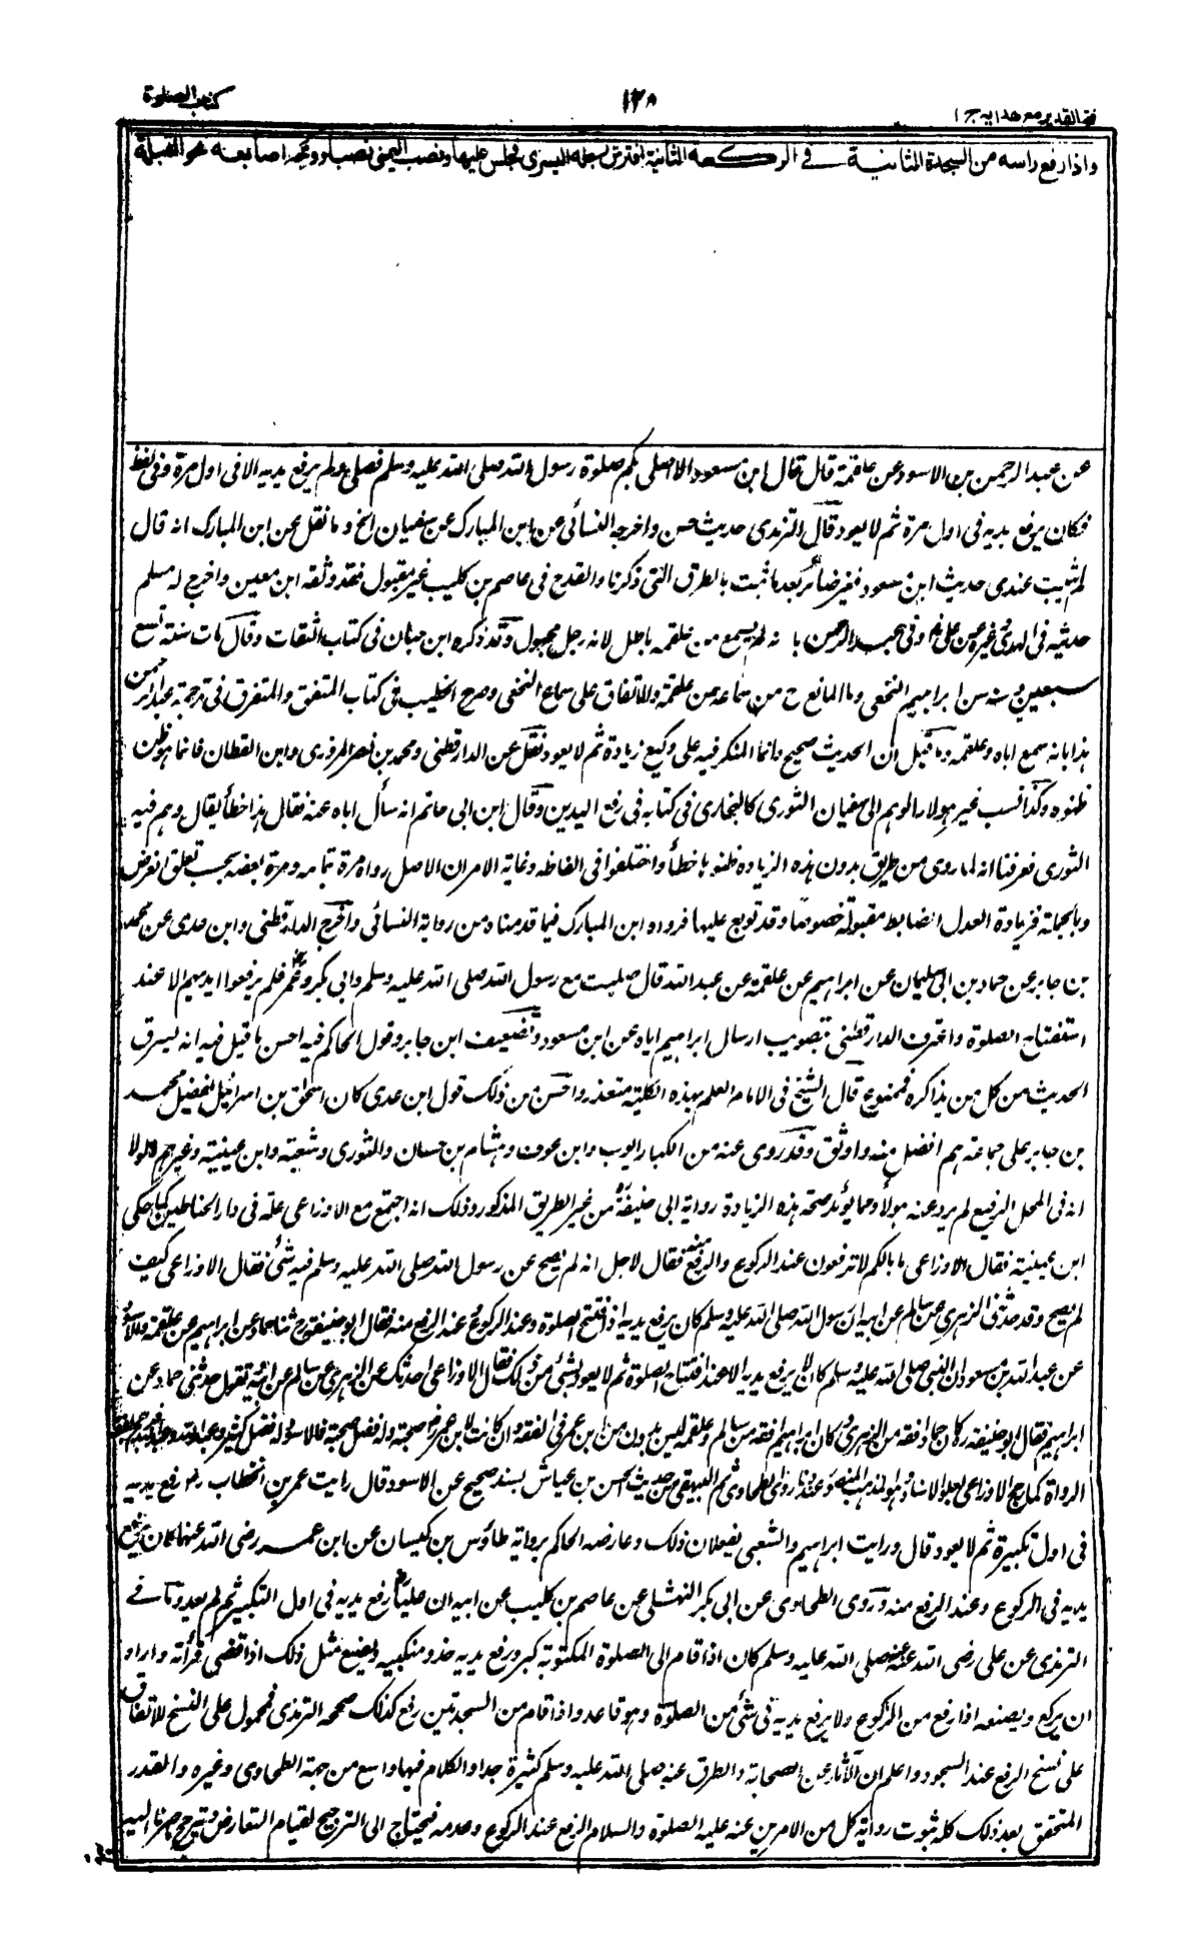 كتاب الصلوة
١٢٨
فتح القدير مع هدايه ج ١
واذا رفع راسه من السجدة الثانية في الركعة الثانية افترش رجله اليسرى فجلس عليها ونصب اليمنى نصبا ووجه اصابعه نحو القبلة
عن عبد الرحمن بن الاسود عن علقمة قال قال ابن مسعود الا اصلي بكم صلوة رسول الله صلى الله عليه وسلم فصلى ولم يرفع يديه الا في اول مرة وفي لفظ
فكان يرفع يديه في اول مرة ثم لا يعود قال الترمذي حديث حسن واخرجه النسائي عن ابن المبارك عن سفيان الخ وما نقل عن ابن المبارك انه قال
لم يثبت عندي حديث ابن مسعود فغير ضائر بعد ما ثبت بالطرق التي ذكرنا والقدح في عاصم بن كليب غير مقبول فقد وثقه ابن معين واخرج له مسلم
حديثه في الهدي وغيره عن علي وفي عبد الرحمن بانه لم يسمع من علقمة باطل لانه رجل مجهول وقد ذكره ابن حبان في كتاب الثقات وقال مات سنة تسع
وسنه سن ابراهيم النخعي وما المانع ح من سماعه من علقمة والاتفاق على سماع النخعي وصرح الخطيب في كتاب المتفق والمتفرق في ترجمة عبد الرحمن
هذا بانه سمع اباه وعلقمة وما قيل ان الحديث صحيح وانما المنكر فيه على وكيع زيادة ثم لا يعود نقل عن الدارقطني ومحمد بن نصر المروزي وابن القطان فانما هو ظن
ظنوه وكذا نسب غير هولاء الوهم الى سفيان الثوري كالبخاري في كتابه في رفع اليدين وقال ابن ابي حاتم انه سأل اباه عنه فقال هذا خطأ يقال وهم فيه
الثوري فعرفنا انه لما روى من طريق بدون هذه الزيادة ظنوها خطأ واختلفوا في الفاظه وغاية الامر ان الاصل رواه مرة بتمامه ومرة بعضه بحسب تعلق الغرض
وبالجملة فزيادة العدل الضابط مقبولة خصوصا وقد توبع عليها فرواه ابن المبارك فيما قدمناه من رواية النسائي واخرج الدارقطني وابن عدي عن محمد
بن جابر عن حماد بن ابي سليمان عن ابراهيم عن علقمة عن عبد الله قال صليت مع رسول الله صلى الله عليه وسلم وابي بكر وعمر فلم يرفعوا ايديهم الا عند
استفتاح الصلوة واعترف الدارقطني بتصويب ارسال ابراهيم اياه عن ابن مسعود وتضعيف ابن جابر وقول الحاكم فيه احسن ما قيل فيه انه يسرق
الحديث من كل من يذاكره فممنوع قال الشيخ في الامام العلم بهذه الكلية متعذر واحسن من ذلك قول ابن عدي كان اسحق بن اسرائيل يفضل محمد
بن جابر على جماعة هم افضل منه واوثق وقد روى عنه من الكبار ايوب وابن عون وهشام بن حسان والثوري وشعبة وابن عيينة وغيرهم ولولا
انه في المحل الرفيع لم يرو عنه هولاء ومما يؤيد صحة هذه الزيادة رواية ابي حنيفة من غير الطريق المذكور وذلك انه اجتمع مع الاوزاعي بمكة في دار الحناطين كما حكى
ابن عيينة فقال الاوزاعي ما بالكم لا ترفعون عند الركوع والرفع منه فقال لاجل انه لم يصح عن رسول الله صلى الله عليه وسلم فيه شئ فقال الاوزاعي كيف
لم يصح وقد حدثني الزهري عن سالم عن ابيه ان رسول الله صلى الله عليه وسلم كان يرفع يديه اذا افتتح الصلوة وعند الركوع وعند الرفع منه فقال ابو حنيفة حدثنا حماد عن ابراهيم عن علقمة والاسود
عن عبد الله بن مسعود ان النبي صلى الله عليه وسلم كان لا يرفع يديه الا عند افتتاح الصلوة ثم لا يعود بشئ من ذلك فقال الاوزاعي احدثك عن الزهري عن سالم عن ابيه وتقول حدثني حماد عن
ابراهيم فقال ابو حنيفة كان حماد افقه من الزهري وكان ابراهيم افقه من سالم وعلقمة ليس بدون من ابن عمر في الفقه وان كانت لابن عمر صحبة وله فضل صحبة فالاسود له فضل كثير وعبد الله عبد الله
الرواة كما رجح الاوزاعي بعلو الاسناد وهو المذهب وروى الطحاوي ثم البيهقي من حديث الحسن بن عياش بسند صحيح عن الاسود قال رايت عمر بن الخطاب رض رفع يديه
في اول تكبيرة ثم لا يعود قال ورايت ابراهيم والشعبي يفعلان ذلك وعارضه الحاكم برواية طاؤس بن كيسان عن ابن عمر رضي الله عنهما كان يرفع
يديه في الركوع وعند الرفع منه وروى الطحاوي عن ابي بكر النهشلي عن عاصم بن كليب عن ابيه ان عليا رفع يديه في اول التكبير ثم لم يعد وما في
الترمذي عن علي رضي الله عنه صلى الله عليه وسلم كان اذا قام الى الصلوة المكتوبة كبر ورفع يديه حذو منكبيه ويصنع مثل ذلك اذا قضى قرأته واراد
ان يركع ويصنعه اذا رفع من الركوع ولا يرفع يديه في شئ من الصلوة وهو قاعد واذا قام من السجدتين رفع كذلك صححه الترمذي فمحمول على النسخ للاتفاق
على نسخ الرفع عند السجود واعلم ان الآثار عن الصحابة والطرق عنه صلى الله عليه وسلم كثيرة جدا والكلام فيها واسع من جهة الطحاوي وغيره والقدر
المتحقق بعد ذلك كله ثبوت رواية كل من الامرين عنه عليه الصلوة والسلام الرفع عند الركوع وعدمه فيحتاج الى الترجيح لقيام التعارض ويترجح ما صرنا اليه